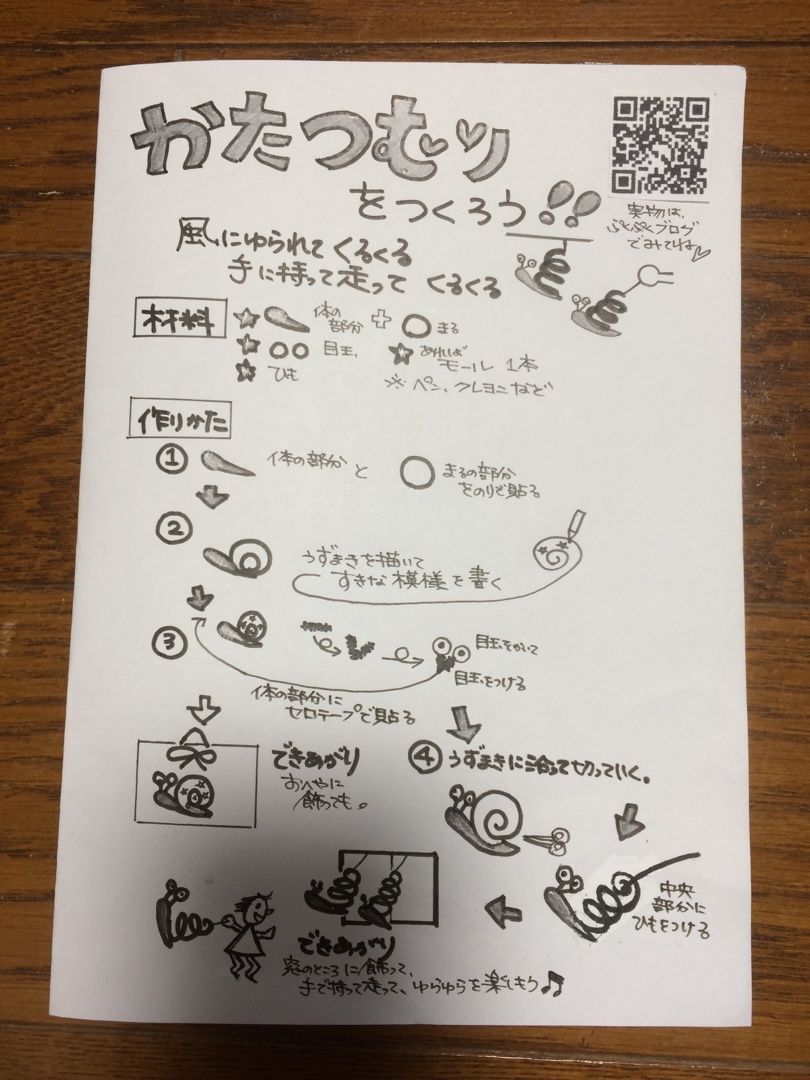 かたつむり
をつくろう!!
実物は、
ぷくぷくブログ
でみてね
風にゆられて くるくる
手に持って走って くるくる
材料
体の部分 + まる
目玉、 あればモール 1本
ひも ※ペン、クレヨンなど
作りかた
① 体の部分 と まるの部分をのりで貼る
② うずまきを描いて
すきな模様を書く
③ 目玉をかいて
目玉をつける
体の部分に
セロテープで貼る
できあがり
おへやに
飾っても。
④ うずまきに沿って切っていく。
中央
部分に
ひもをつける
できあがり
窓のところに飾って、
手で持って走って、ゆらゆらを楽しもう♫